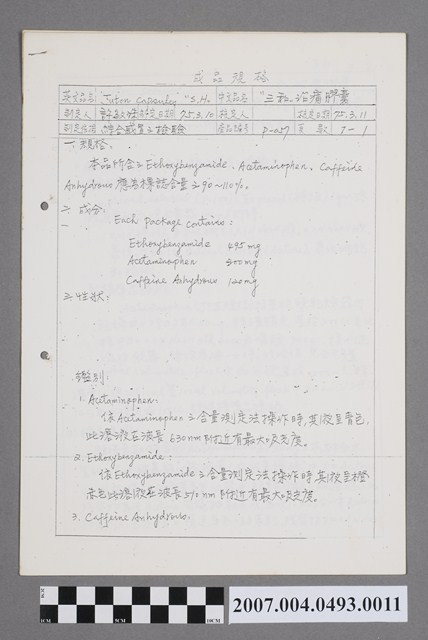 成品規格
英文品名 "Juton Capsules" "S.H." 中文品名 "三和"治痛膠囊
制定人 許敏珠 制定日期 75.3.10 核定人 核定日期 75.3.11
制定依據 綜合成藥之檢驗 產品編號 P-057 頁數 7-1
一. 規格:
本品所含之Ethoxybenzamide, Acetaminophen, Caffeine
Anhydrous應為標誌含量之90~110%.
二. 成分:
Each package contains:
Ethoxybenzamide 495mg
Acetaminophen 300mg
Caffeine Anhydrous 120mg
三. 性狀:
鑑別:
1. Acetaminophen:
依Acetaminophen之含量測定法操作時,其液呈青色,
此溶液在波長630nm附近有最大吸光度。
2. Ethoxybenzamide:
依Ethoxybenzamide之含量測定法操作時,其液呈橙
赤色此溶液在波長510nm附近有最大吸光度。
3. Caffeine Anhydrous:
1CM 5CM 10CM
2007.004.0493.0011